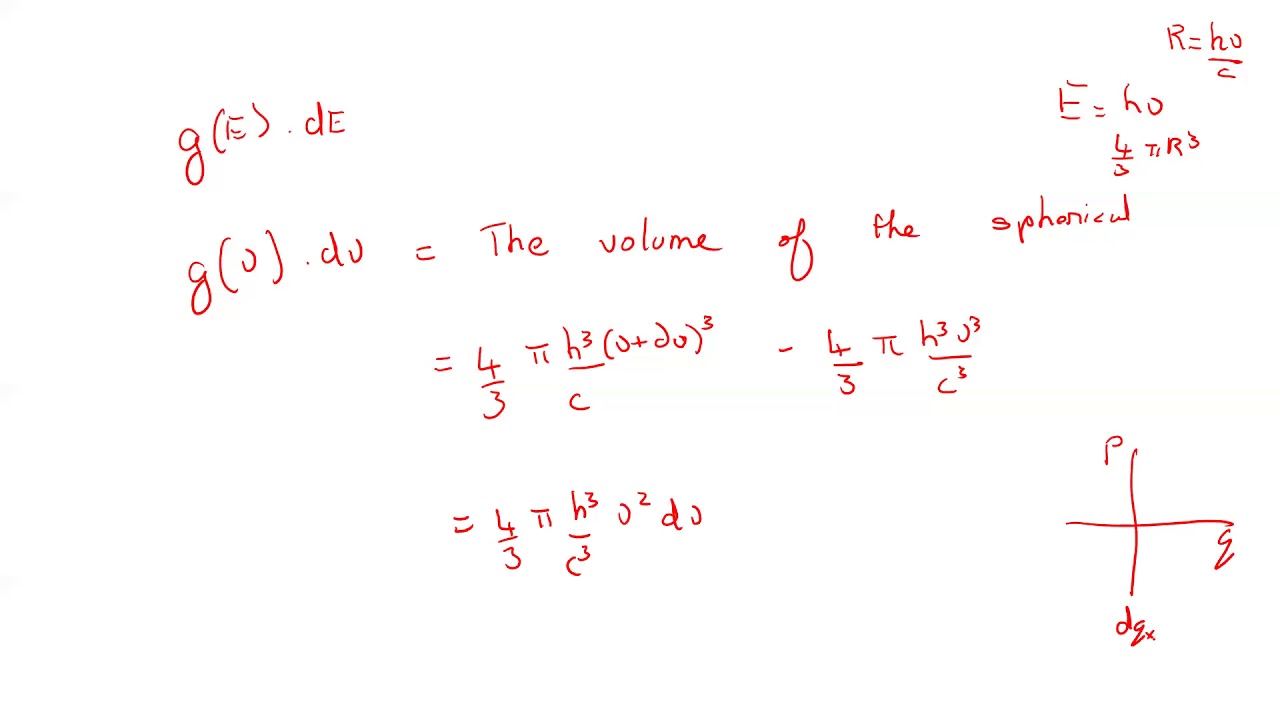 R = hυ/c
E = hυ
4/3 πR³
g(E). dE
g(υ). dυ = The volume of the spherical
= 4/3 π h³/c (υ+dυ)³ - 4/3 π h³υ³/c³
= 4/3 π h³/c³ υ² dυ
P
q
dqₓ